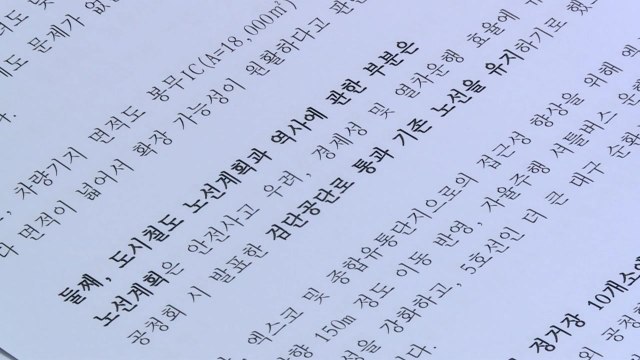 도 문제가 없
차량기지 면적도 봉무IC(A=18,000㎡
다 면적이 넓어서 확장 가능성이 원활하다고 판
둘째, 도시철도 노선계획과 역사에 관한 부분은
노선계획은 안전사고 우려, 경제성 및 열차운행 효율에
공청회 시 발표한 검단공단로 통과 기존 노선을 유지하기로 했
엑스코 및 종합유통단지으로의 접근성 향상을 위해 엑
향 150m 정도 이동 반영, 자율주행 셔틀버스 운행
성을 강화하고, 5호선인 더 큰 대구 순환
다.
정거장 10개소에
공청